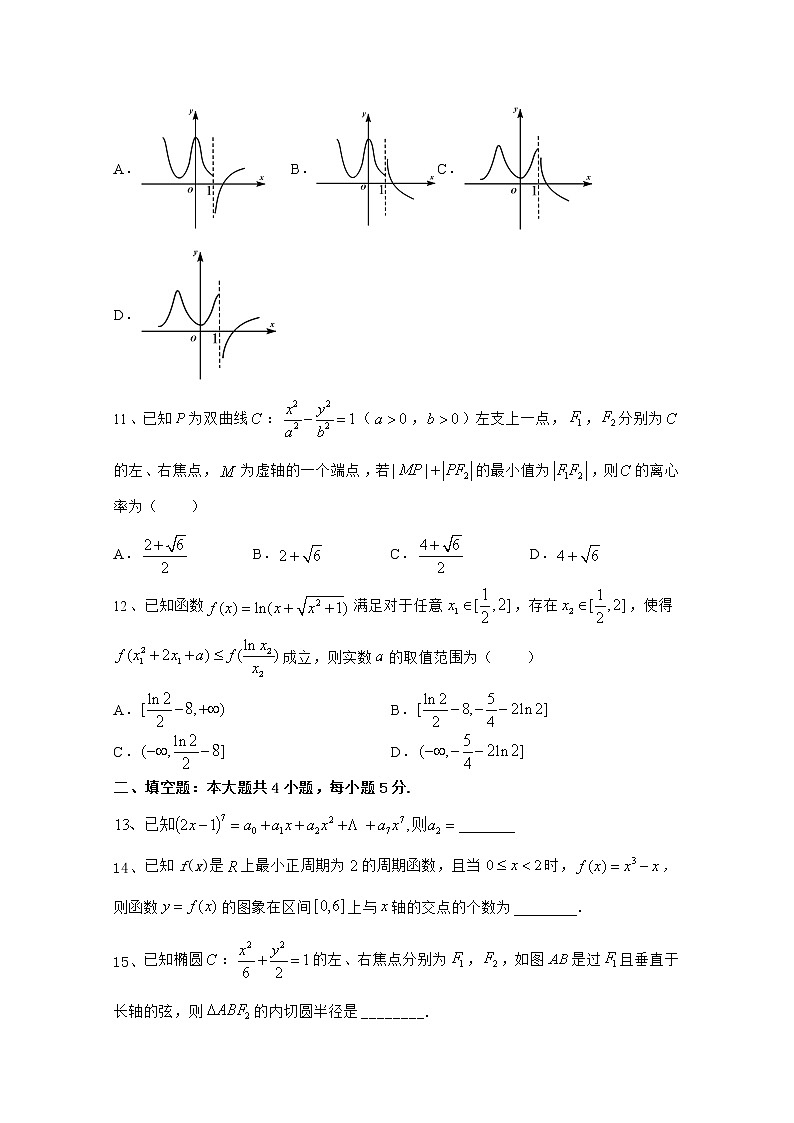 A. y x o 1 B. y x o 1 C. y x o 1
D. y x o 1
11、已知P为双曲线C：x²/a² − y²/b² = 1（a > 0，b > 0）左支上一点，F₁，F₂分别为C
的左、右焦点，M 为虚轴的一个端点，若|MP| + |PF₂|的最小值为|F₁F₂|，则C的离心
率为（ ）
A. (2+√6)/2 B. 2+√6 C. (4+√6)/2 D. 4+√6
12、已知函数 f(x) = ln(x + √(x²+1)) 满足对于任意 x₁∈[1/2,2]，存在 x₂∈[1/2,2]，使得
f(x₁² + 2x₁ + a) ≤ f(ln x₂/x₂) 成立，则实数a的取值范围为（ ）
A. [ln 2/2 − 8,+∞) B. [ln 2/2 − 8,−5/4 − 2ln 2]
C. (−∞,ln 2/2 − 8] D. (−∞,−5/4 − 2ln 2]
二、填空题：本大题共4小题，每小题5分．
13、已知(2x−1)⁷ = a₀ + a₁x + a₂x² + Λ + a₇x⁷,则a₂ = ________
14、已知 f(x)是R上最小正周期为2的周期函数，且当 0 ≤ x < 2时，f(x) = x³ − x，
则函数 y = f(x) 的图象在区间[0,6]上与x轴的交点的个数为________．
15、已知椭圆C：x²/6 + y²/2 = 1的左、右焦点分别为F₁，F₂，如图AB是过F₁且垂直于
长轴的弦，则ΔABF₂的内切圆半径是________．